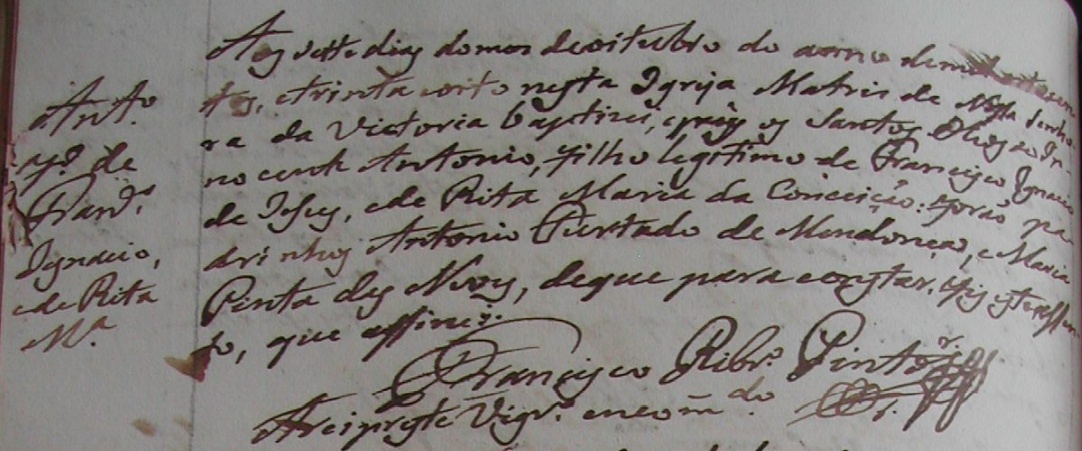 Ant.º
f.º de
Fran.co
Ignacio,
e de Rita
M.ª
Aos sette dias do mes de oitubro do anno de mil oitocen-
tos, e trinta e oito nesta Igrija Matris de Nossa Senho-
ra da Victoria baptizei, e puz os Santos Oleos ao In-
nocente Antonio, filho legitimo de Francisco Ignacio
de Jesus, e de Rita Maria da Conceição: forão pa-
drinhos Antonio Furtado de Mendonça, e Maria
Pinta das Neves, de que para constar, fiz este assen-
to, que assinei.
Francisco Ribr.º Pinto
Arcipreste Vigr.º encom.do